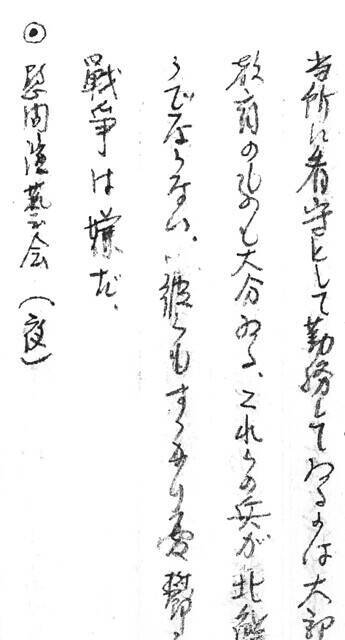 当所に看守として勤務してゐるのは大部
教育のものも大分ゐる、これらの兵が北
うでならない、彼らもすつかり憂鬱
戦争は嫌だ、
◉ 慰問演藝会（夜）